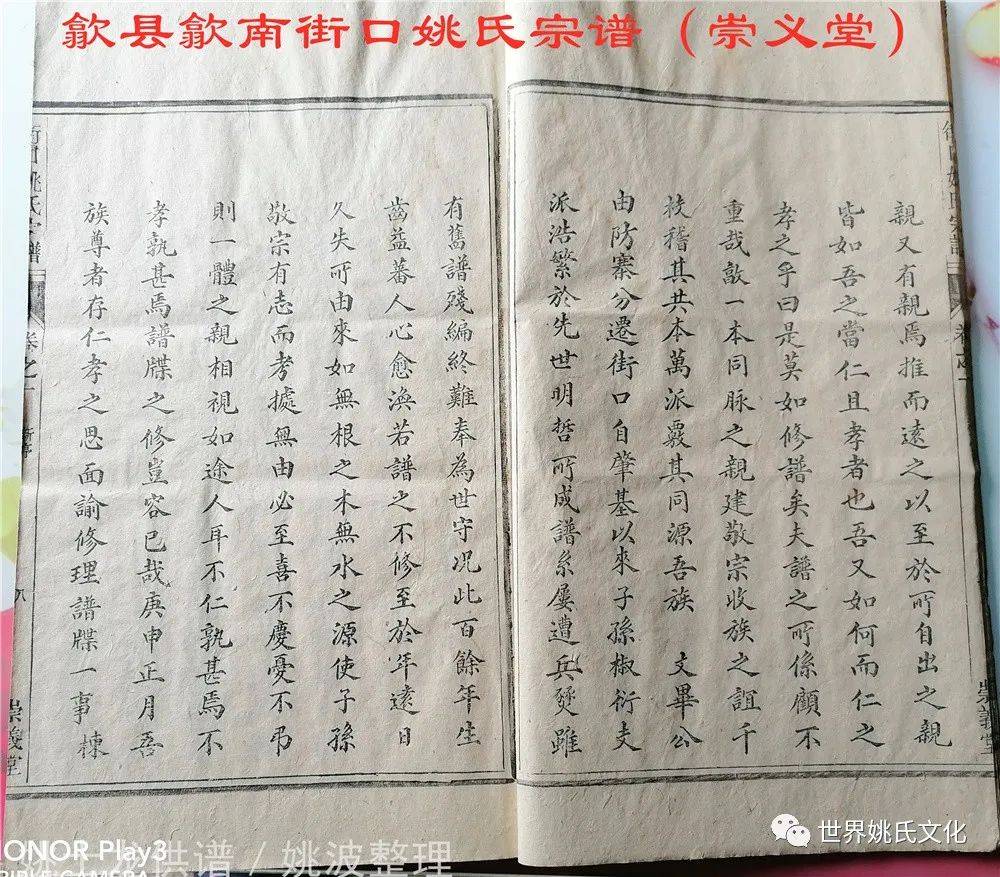 歙县歙南街口姚氏宗谱（崇义堂）
親又有親焉推而遠之以至於所自出之親
皆如吾之當仁且孝者也吾又如何而仁之
孝之乎曰是莫如修譜矣夫譜之所係顧不
重哉敦一本同脉之親建敬宗收族之誼千
枝稽其共本萬派覈其同源吾族　文畢公
由防寨分遷街口自肇基以來子孫椒衍支
派浩繁於先世明哲所成譜系屢遭兵燹雖
崇義堂
有舊譜殘編終難奉為世守况此百餘年生
齒益蕃人心愈渙若譜之不修至於年遠日
久失所由來如無根之木無水之源使子孫
敬宗有志而考據無由必至喜不慶憂不弔
則一體之親相視如途人耳不仁孰甚焉不
孝孰甚焉譜牒之修豈容已哉庚申正月吾
族尊者存仁孝之思面諭修理譜牒一事棟
街口姚氏宗譜
卷之一
八
崇義堂
世界姚氏文化
HONOR Play3
供谱 / 姚波整理